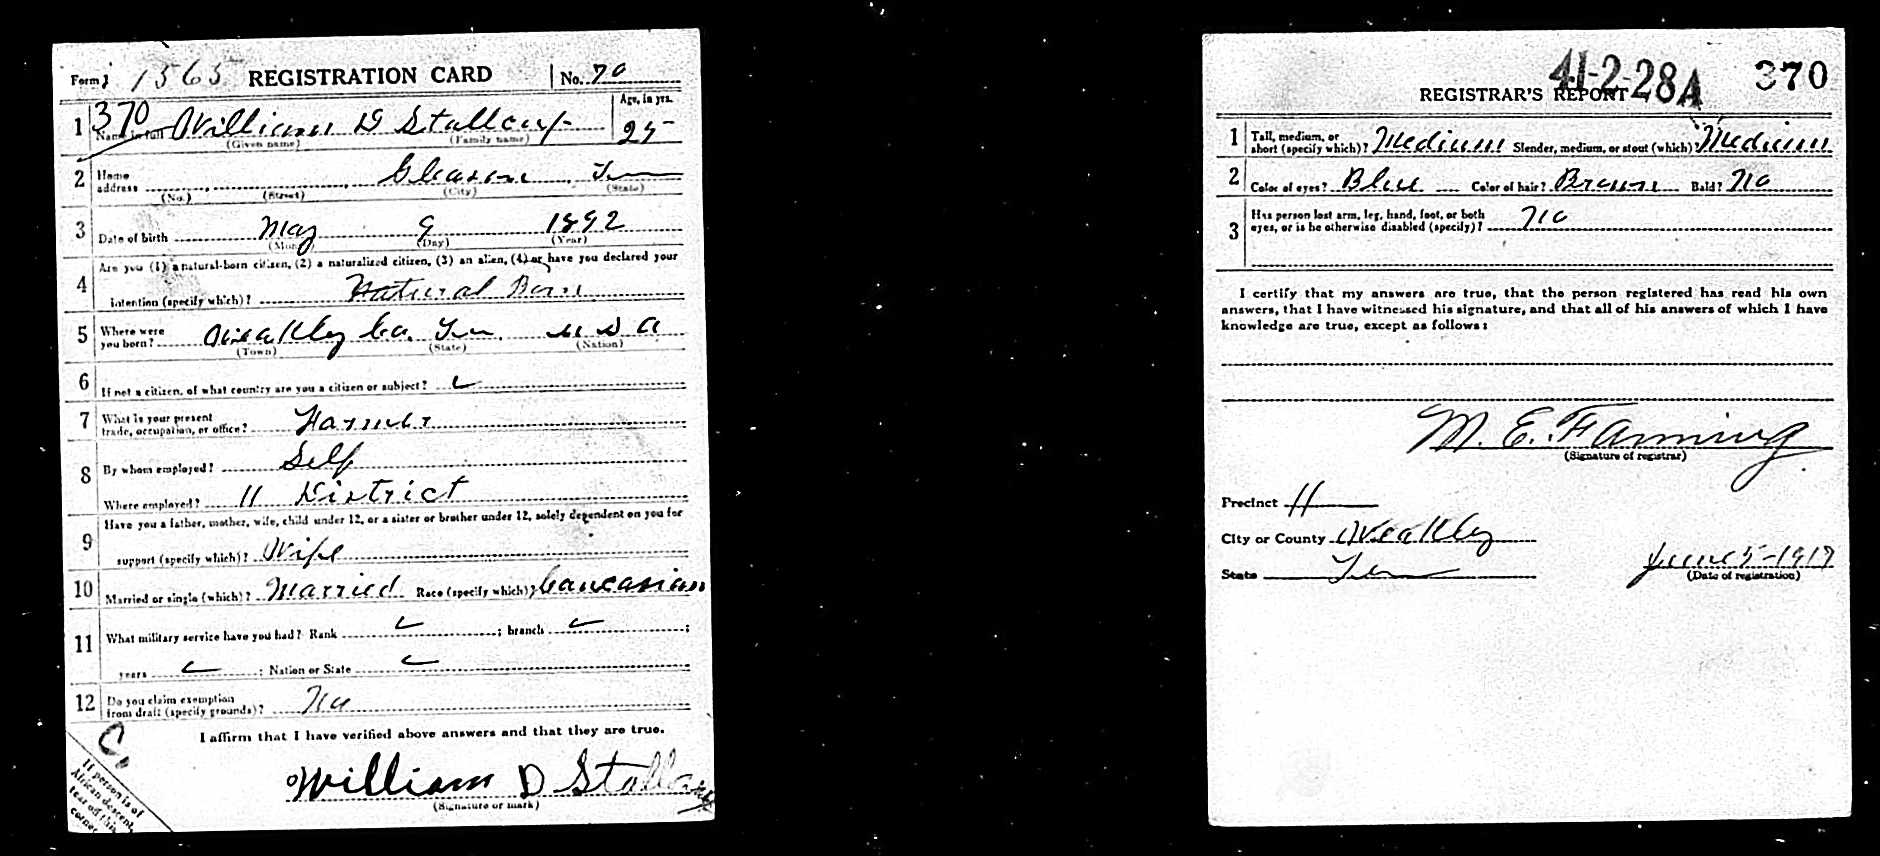 Form 1 1565 REGISTRATION CARD No. 70
1 370 Name in full William D Stallcup Age, in yrs. 25
(Given name) (Family name)
2 Home address Gleason Ten
(No.) (Street) (City) (State)
3 Date of birth May 9 1892
(Month) (Day) (Year)
4 Are you (1) a natural-born citizen, (2) a naturalized citizen, (3) an alien, (4) or have you declared your
intention (specify which)? Natural Born
5 Where were you born? Weakley Co. Ten. U S A
(Town) (State) (Nation)
6 If not a citizen, of what country are you a citizen or subject?
7 What is your present trade, occupation, or office? Farmer
8 By whom employed? Self
Where employed? 11 District
9 Have you a father, mother, wife, child under 12, or a sister or brother under 12, solely dependent on you for
support (specify which)? Wife
10 Married or single (which)? Married Race (specify which)? Caucasian
11 What military service have you had? Rank ; branch ;
years ; Nation or State
12 Do you claim exemption from draft (specify grounds)? No
I affirm that I have verified above answers and that they are true.
William D Stallcup
(Signature or mark)
If person is of
African descent,
tear off this
corner
41-2-28A 370
REGISTRAR'S REPORT
1 Tall, medium, or short (specify which)? Medium Slender, medium, or stout (which)? Medium
2 Color of eyes? Blue Color of hair? Brown Bald? No
3 Has person lost arm, leg, hand, foot, or both
eyes, or is he otherwise disabled (specify)? No
I certify that my answers are true, that the person registered has read his own
answers, that I have witnessed his signature, and that all of his answers of which I have
knowledge are true, except as follows:
M. E. Fanning
(Signature of registrar)
Precinct 11
City or County Weakley
State Ten
June 5-1917
(Date of registration)